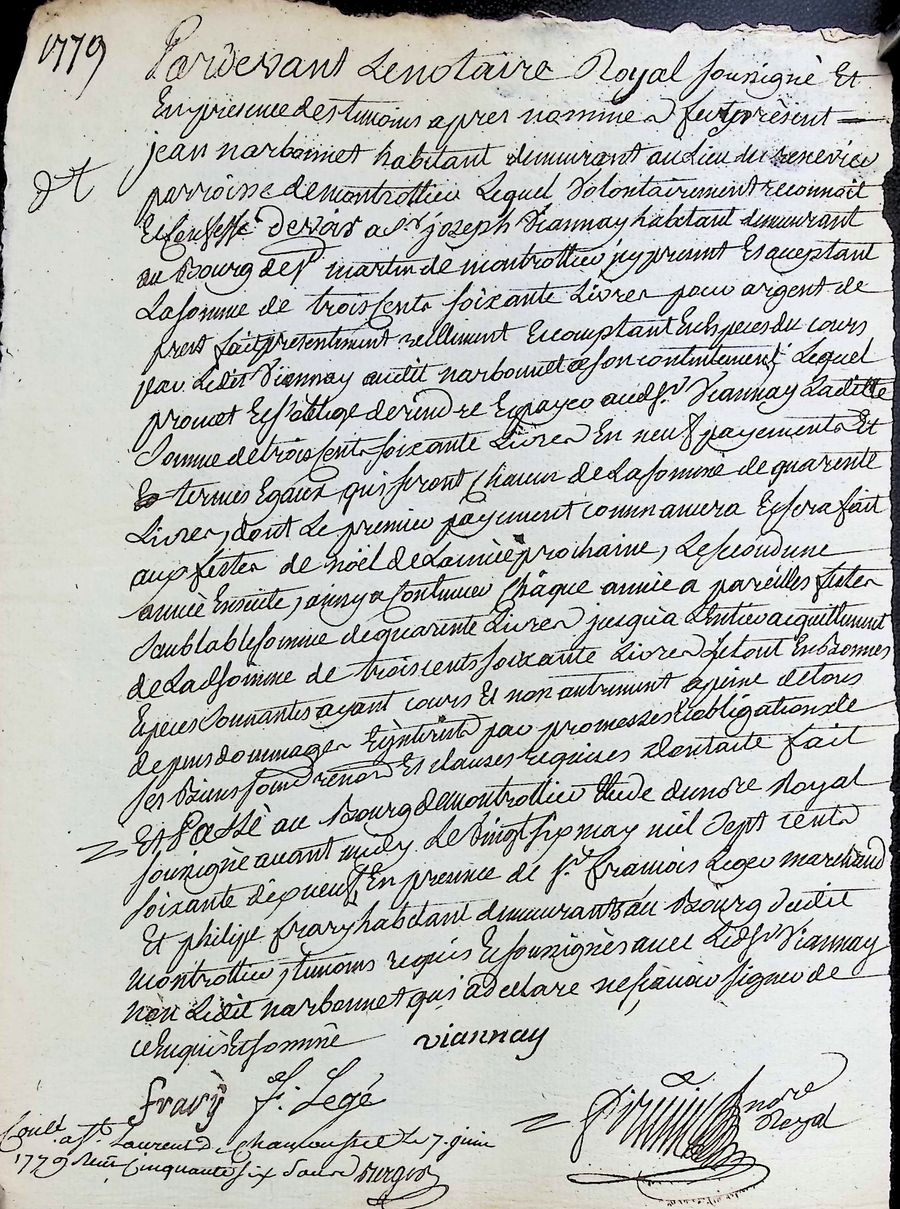 1779
Pardevant Lenotaire Royal sousigné Et
Enpresence destemoins apres nommes fut present
jean narbonnet habitant demeurant au Lieu du
dt
parroisse demontrottier Lequel Volontairement reconnoit
Et Confesse devoir a Sr jozeph Viannay habitant demeurant
au Bourg de St martin de montrottier jcy present Et aceptant
La somme de trois Cents soixante Livres pour argent de
prest fait presentement réellement Et comptant En Especes du cours
par Ledit Viannay audit narbonnet a son contentement Lequel
promet Et s'oblige de rendre Et payer aud. Sr Viannay Laditte
Somme de trois Cents soixante Livres En neuf payements Et
termes Egaux qui seront Chacun de La somme de quarente
Livres, dont Le premier payement commancera Et sera fait
aux festes de noël de L'année prochaine, Le second une
année Ensuite, ainsy a Continuer Châque année a pareilles festes
Samblable somme de quarente Livres jusqu'a L'Entier acquittement
de Lad somme de trois cents soixante Livres Le tout En Bonnes
Espèces Sonnantes ayant cours Et non autrement a peine de tous
depens dommages Et interets par promesses obligations de
ses Biens Et clauses requises dont acte fait
Et Passé au Bourg de montrottier Etude du nore Royal
sousigné avant midy Le Vingt six may mil Sept cents
soixante dix neuf, En presence de Sr. francois Leger marchand
Et philippe frary habitant demeurants au Bourg dudit
montrottier, temoins requis Et sousignés avec Led Sr Viannay
non Ledit narbonnet qui a declaré ne sçavoir signer de
ce Enquis Et sommé viannay
fravÿ f. Legé
nore
Royal
Conllé a St Laurent de Chamousset le 7. juin
1779 Reçu Cinquante six sous